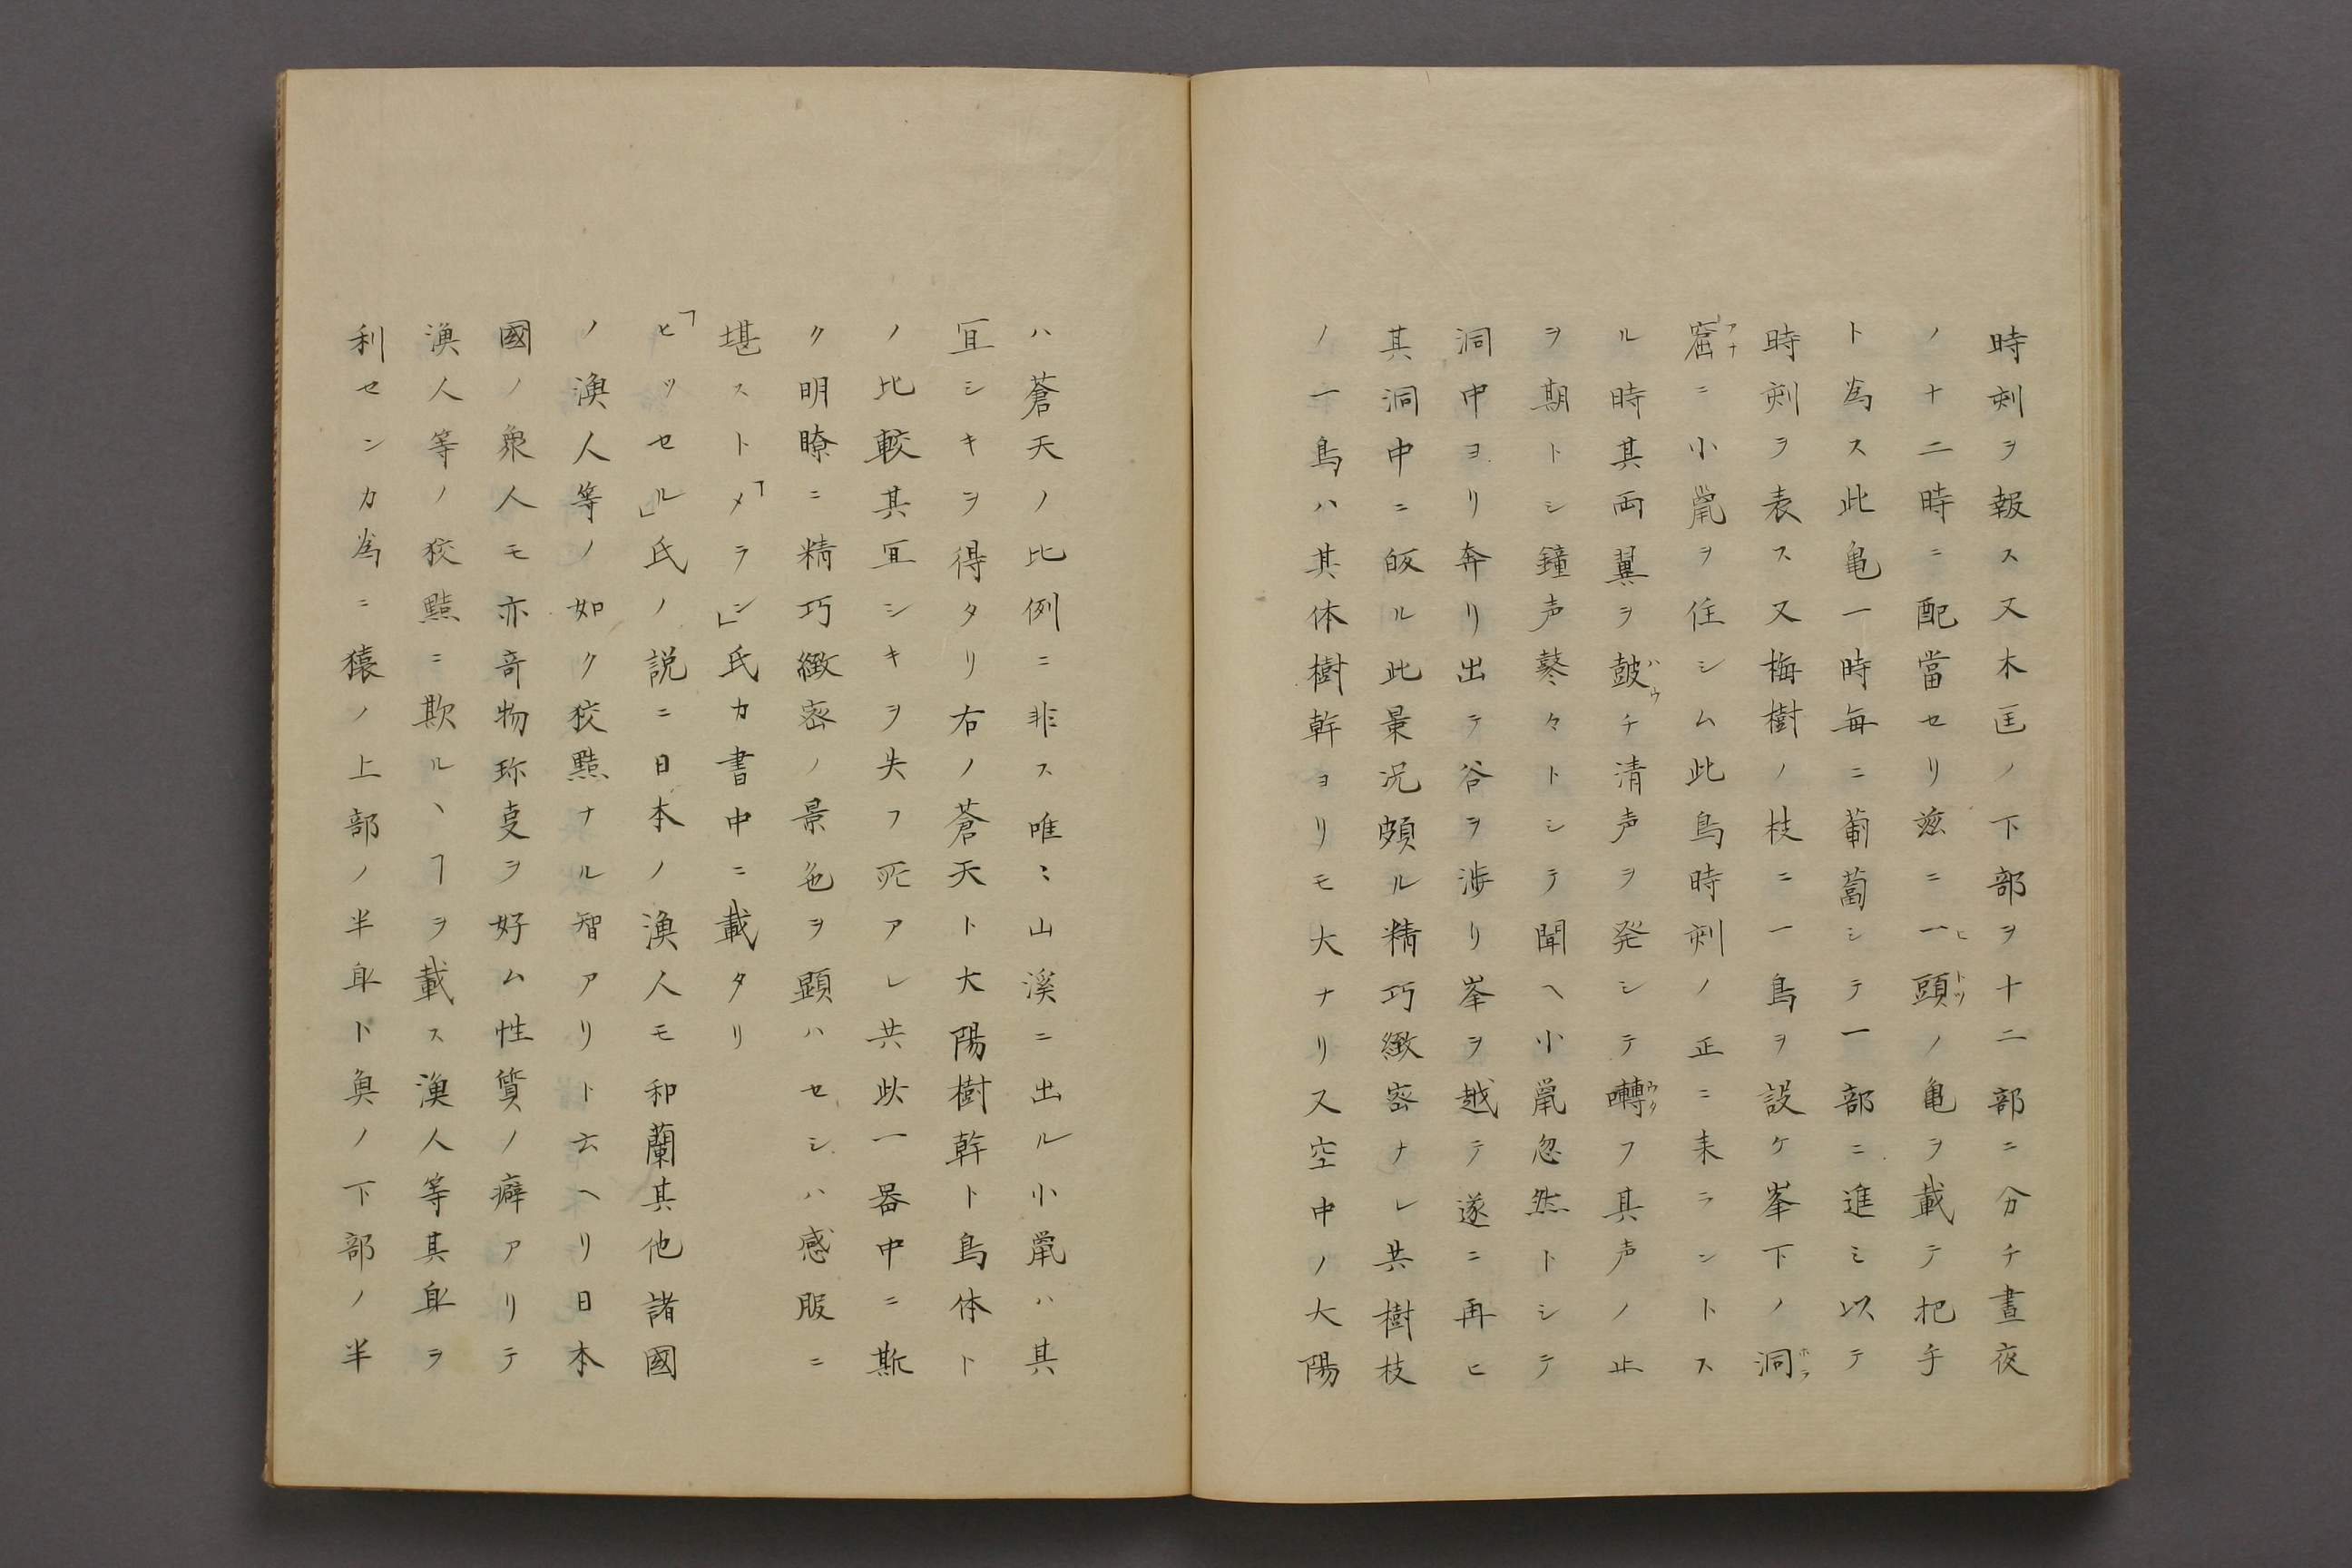 時刻ヲ報ス又木匡ノ下部ヲ十二部ニ分チ晝夜
ノ十二時ニ配當セリ茲ニ一頭ノ亀ヲ載テ把手
ト為ス此亀一時毎ニ葡萄シテ一部ニ進ミ以テ
時刻ヲ表ス又梅樹ノ枝ニ一鳥ヲ設ケ峯下ノ洞
窟ニ小鼠ヲ住シム此鳥時刻ノ正ニ来ラントス
ル時其両翼ヲ皷チ清声ヲ発シテ囀フ其声ノ止
ヲ期トシ鐘声鼕々トシテ聞ヘ小鼠忽然トシテ
洞中ヨリ奔リ出テ谷ヲ渉リ峯ヲ越テ遂ニ再ヒ
其洞中ニ皈ル此景况頗ル精巧緻密ナレ共樹枝
ノ一鳥ハ其体樹幹ヨリモ大ナリ又空中ノ大陽
ハ蒼天ノ比例ニ非ス唯〻山溪ニ出ル小鼠ハ其
冝シキヲ得タリ右ノ蒼天ト大陽樹幹ト鳥体ト
ノ比較其冝シキヲ失フ死アレ共此一器中ニ斯
ク明瞭ニ精巧緻密ノ景色ヲ顕ハセシハ感服ニ
堪スト「メラシ」氏カ書中ニ載タリ
「ヒッセル」氏ノ説ニ日本ノ漁人モ和蘭其他諸國
ノ漁人等ノ如ク狡黠ナル智アリト云ヘリ日本
國ノ衆人モ亦竒物珎叓ヲ好ム性質ノ癖アリテ
漁人等ノ狡黠ニ欺ルヽヿヲ載ス漁人等其身ヲ
利センカ為ニ猿ノ上部ノ半身ト魚ノ下部ノ半